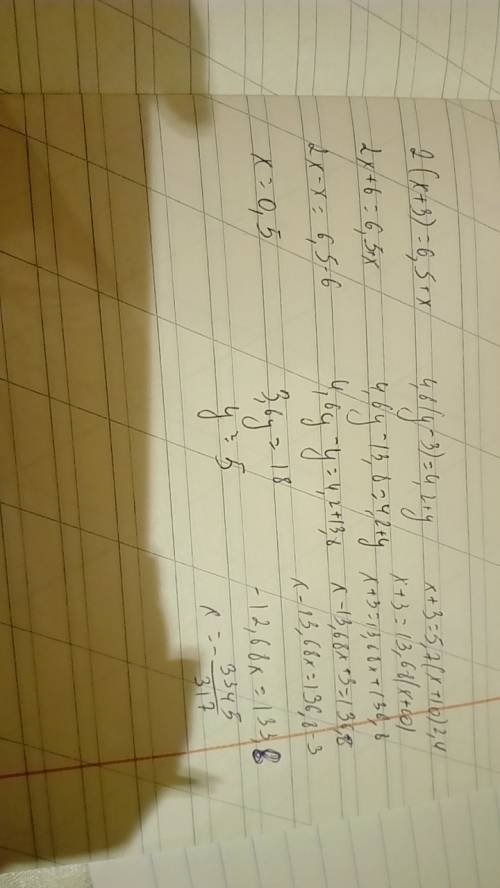 2(x+3)=6,5+x
2x+6=6,5+x
2x-x=6,5-6
x=0,5
4,6(y-3)=4,2+y
4,6y-13,8=4,2+y
4,6y-y=4,2+13,8
3,6y=18
y=5
x+3=5,7(x+10)2,4
x+3=13,68(x+10)
x+3=13,68x+136,8
x-13,68x+3=136,8
x-13,68x=136,8-3
-12,68x=133,8
x=-3345/317